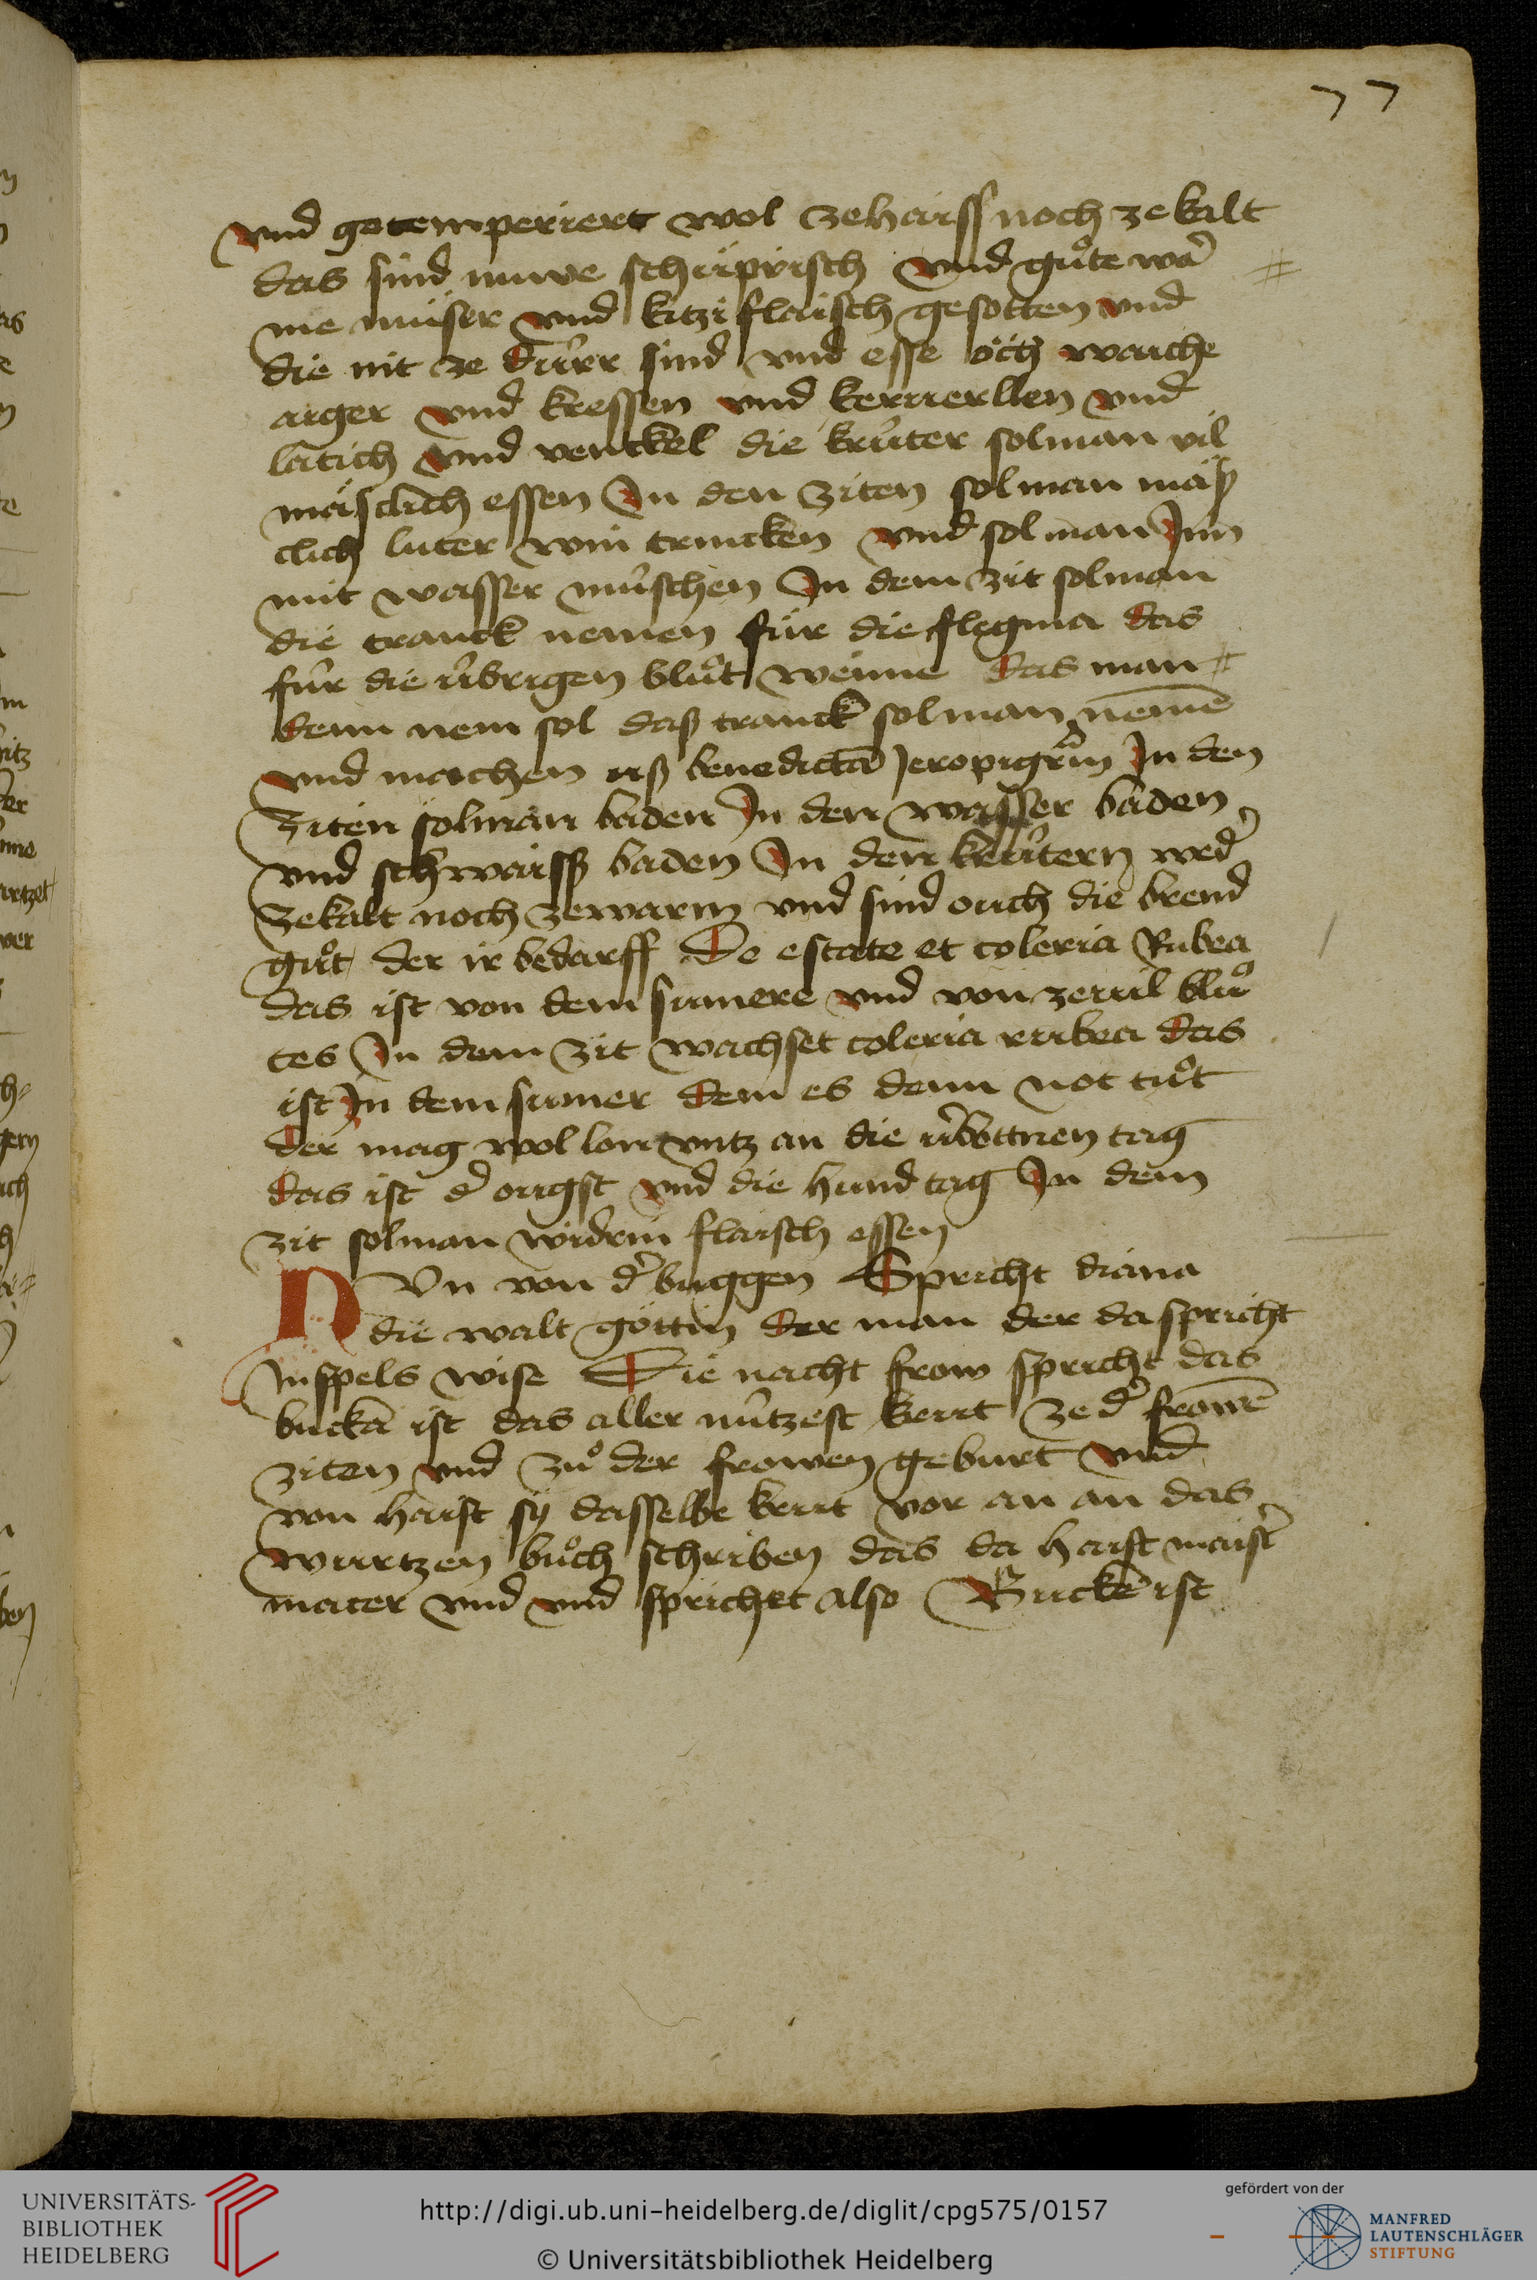 77
vnd getemperiert wol zehaiss noch ze kalt
das sind nuwe vnd guͦte war̄
me müser vnd kitzi flaisch gesotten vnd
die nit ze dürr sind vnd esse öch waiche
aiger vnd kressen vnd keruerllen vnd
latich vnd venckel die krúter solman vil
mäsclich essen In den ziten solman mäß
clich luter win trincken vnd sol man Inn
mit wasser múschen In dem zit solman
die tranck nemen für die flegma das
fúr die úbrigen bluͦt wenne das man
denn nem sol daß tranck solman nemē
vnd machen uß benedictā Jeropigrūm In den
ziten solman baden In den wasser baden
vnd schwaiss baden In den krútern wed̄
zekalt noch zewarm vnd sind ouch die brend
guͦt der ir bedarff De estate et coleria Rubea
das ist von dem sumere vnd von zeuil bluͦ
tes In dem zit wachset coleria rubea das
ist In dem sumer dem es denn not tuͦt
der mag wol lon vntz an die úbottnen tag
das ist d̄ ougst vnd die hund tag In dem
zit solman widrin flaisch essen
NVn von d̄ buggen Spricht diana
die walt göttin der man der da spricht
Inspels wise Die nacht frow spricht das
buckā ist das aller nútzest krut ze d̄ frowē
ziten vnd zuͦ der frowen geburt vnd
von haist sy dasselbe krut vor an an das
wurtzen buͦch schriben das da haist maist̄
macer vnd vnd sprichet also Buckē ist
UNIVERSITÄTS-
BIBLIOTHEK
HEIDELBERG
http://digi.ub.uni-heidelberg.de/diglit/cpg575/0157
© Universitätsbibliothek Heidelberg
gefördert von der
MANFRED
LAUTENSCHLÄGER
STIFTUNG